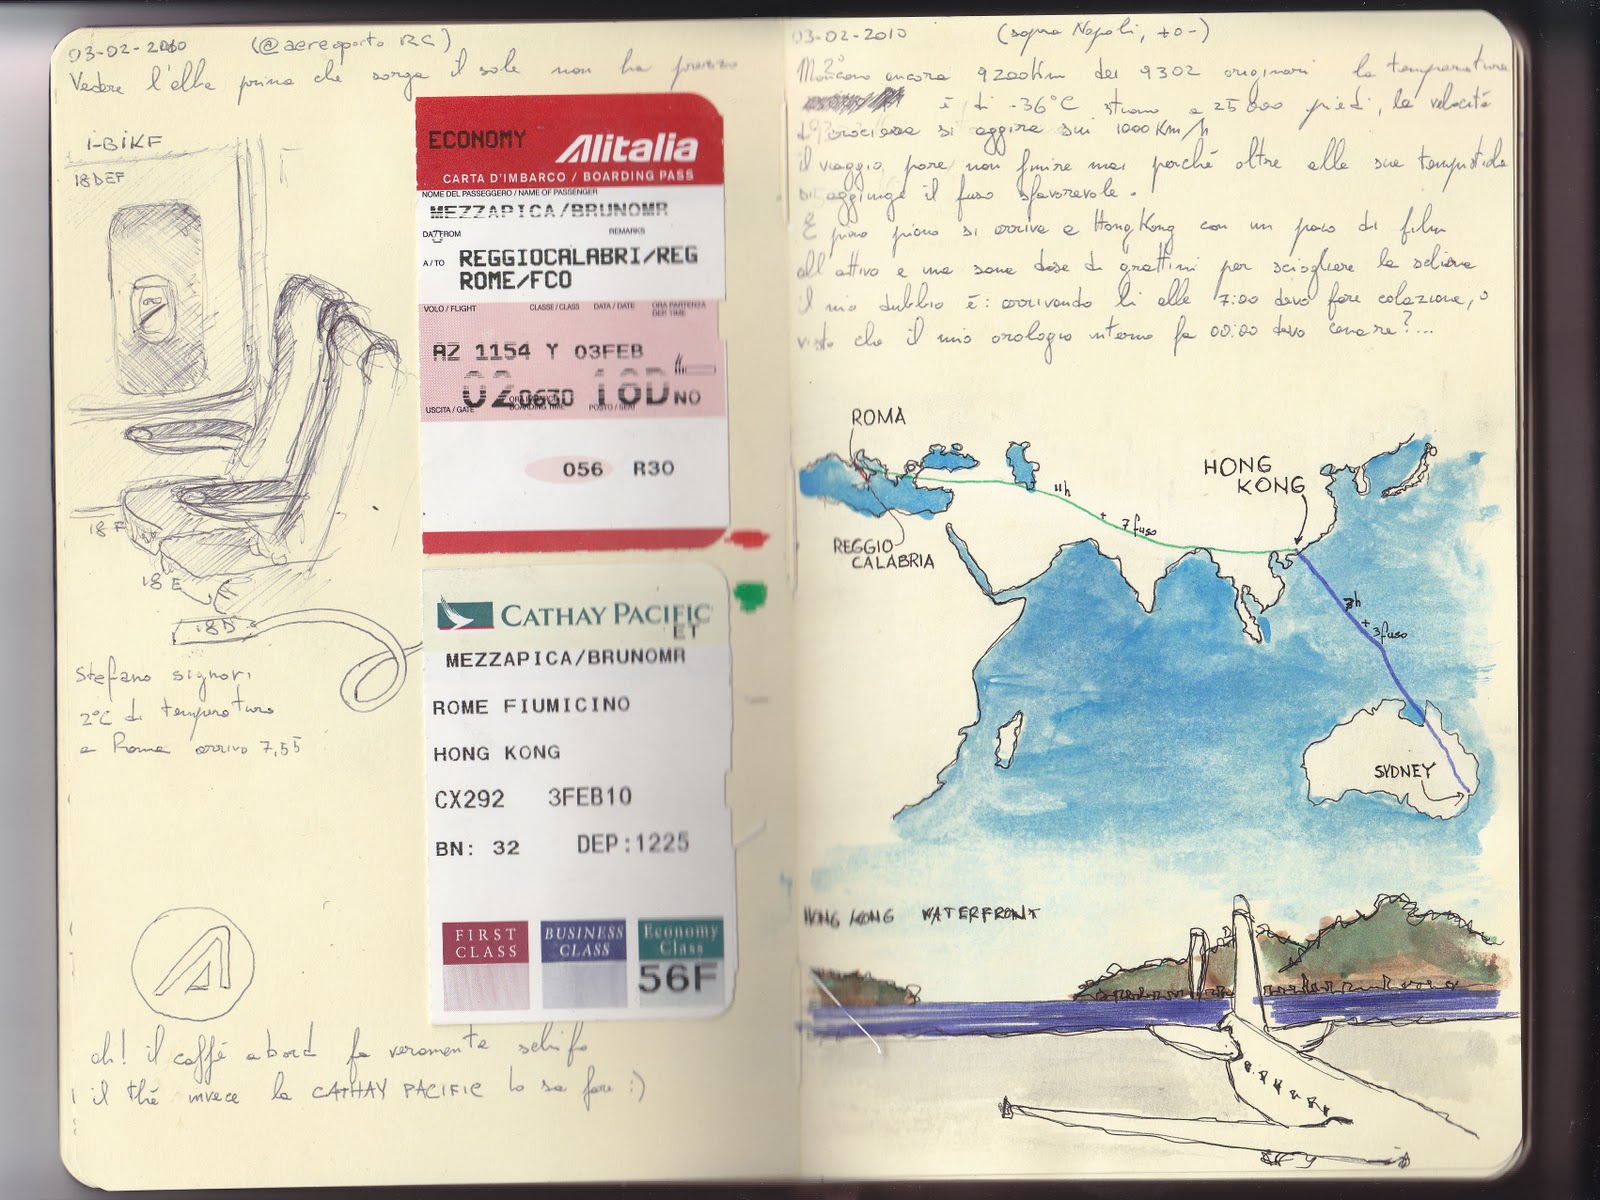 03-02-2010 (@aereoporto RC)
Vedere l'alba prima che sorga il sole non ha prezzo
i-BIKF
18DEF
18 F
18 E
18 D
Stefano signori
2°C di temperatura
a Roma arrivo 7,55
oh! il caffé a bord fa veramente schifo
il thé invece la CATHAY PACIFIC lo sa fare :)
ECONOMY
Alitalia
CARTA D'IMBARCO / BOARDING PASS
NOME DEL PASSEGGERO / NAME OF PASSENGER
MEZZAPICA/BRUNOMR
DA/FROM REMARKS
A/TO REGGIOCALABRI/REG
ROME/FCO
VOLO/FLIGHT CLASSE/CLASS DATA/DATE ORA PARTENZA
DEP. TIME
AZ 1154 Y 03FEB
02 0630 18D NO
USCITA/GATE BOARDING TIME POSTO/SEAT
056 R30
CATHAY PACIFIC
ET
MEZZAPICA/BRUNOMR
ROME FIUMICINO
HONG KONG
CX292 3FEB10
BN: 32 DEP:1225
FIRST CLASS
BUSINESS CLASS
Economy Class
56F
03-02-2010 (sopra Napoli, +o-)
Mancano ancora 9200Km dei 9302 originari la temperatura
è di -36°C siamo a 25000 piedi, la velocità
di crociera si aggira sui 1000 Km/h
il viaggio pare non finire mai perché oltre alla sua tempistica
si aggiunge il fuso sfavorevole.
E piano piano si arriva a Hong Kong con un paio di film
all'attivo e una sana dose di grattini per sciogliere la schiena
il mio dubbio è: arrivando lì alle 7:00 devo fare colazione, o
visto che il mio orologio interno fa 00:00 devo cenare?...
ROMA
REGGIO
CALABRIA
11h
+ 7 fuso
HONG
KONG
+ 3 fuso
SYDNEY
HONG KONG WATERFRONT